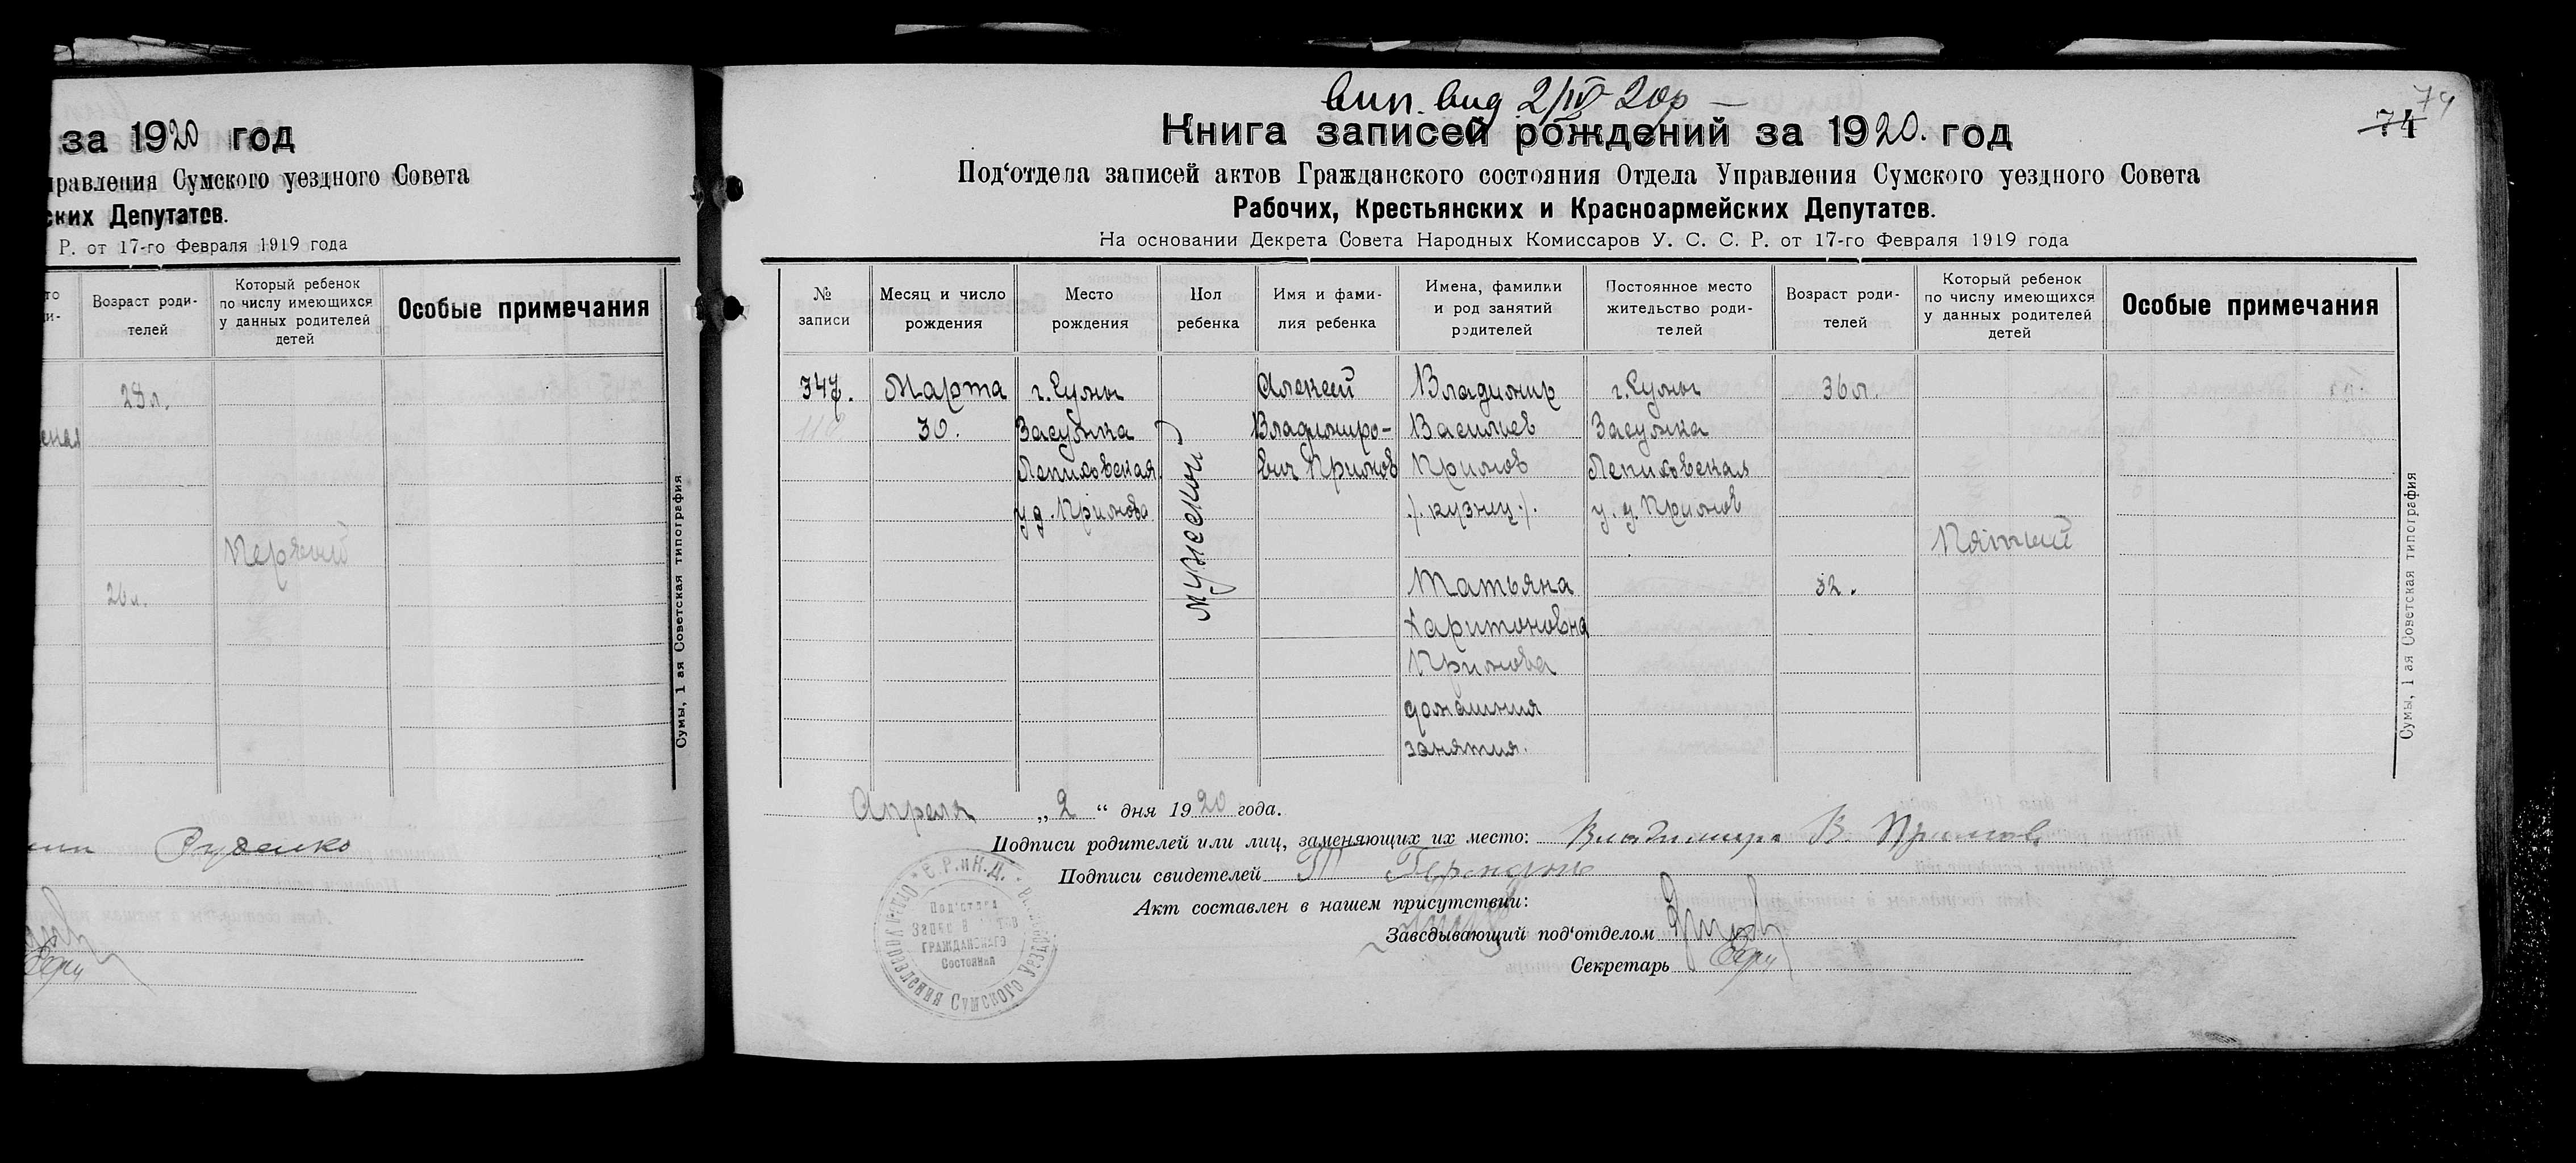 за 1920 год
правления Сумского уездного Совета
ских Депутатов.
Р. от 17-го Февраля 1919 года
Возраст роди-
телей
Который ребенок
по числу имеющихся
у данных родителей
детей
Особые примечания
28 л.
Первый
26 л.
Руденко
Сумы, 1 ая Советская типография
вып. вид 2/IV 20 р —
74
74
Книга записей рождений за 1920. год
Под‘отдела записей актов Гражданского состояния Отдела Управления Сумского уездного Совета
Рабочих, Крестьянских и Красноармейских Депутатов.
На основании Декрета Совета Народных Комиссаров У. С. С. Р. от 17-го Февраля 1919 года
№
записи
Месяц и число
рождения
Место
рождения
Пол
ребенка
Имя и фами-
лия ребенка
Имена, фамилии
и род занятий
родителей
Постоянное место
жительство роди-
телей
Возраст роди-
телей
Который ребенок
по числу имеющихся
у данных родителей
детей
Особые примечания
347.
Марта
30.
г. Сумы
Засумка
Лепиховская
у д. Примова
мужеской
Алексей
Владимиро-
вич Примов
Владимир
Васильев
Примов
/. кузнец ./.
Татьяна
Харитоновна
Примова
домашния
занятия.
г. Сумы
Засумка
Лепиховская
у. д. Примов
36 л.
32.
Пятый
Апреля „ 2 “ дня 1920 года.
Подписи родителей или лиц, заменяющих их место: Владимир В. Примов
Подписи свидетелей
Акт составлен в нашем присутствии:
Заведывающий под‘отделом
Секретарь
Под‘отдел
ГРАЖДАНСКАГО
Состояния
Управления Сумского Уездного
С. Р. и К. Д.
Сумы, 1 ая Советская типография